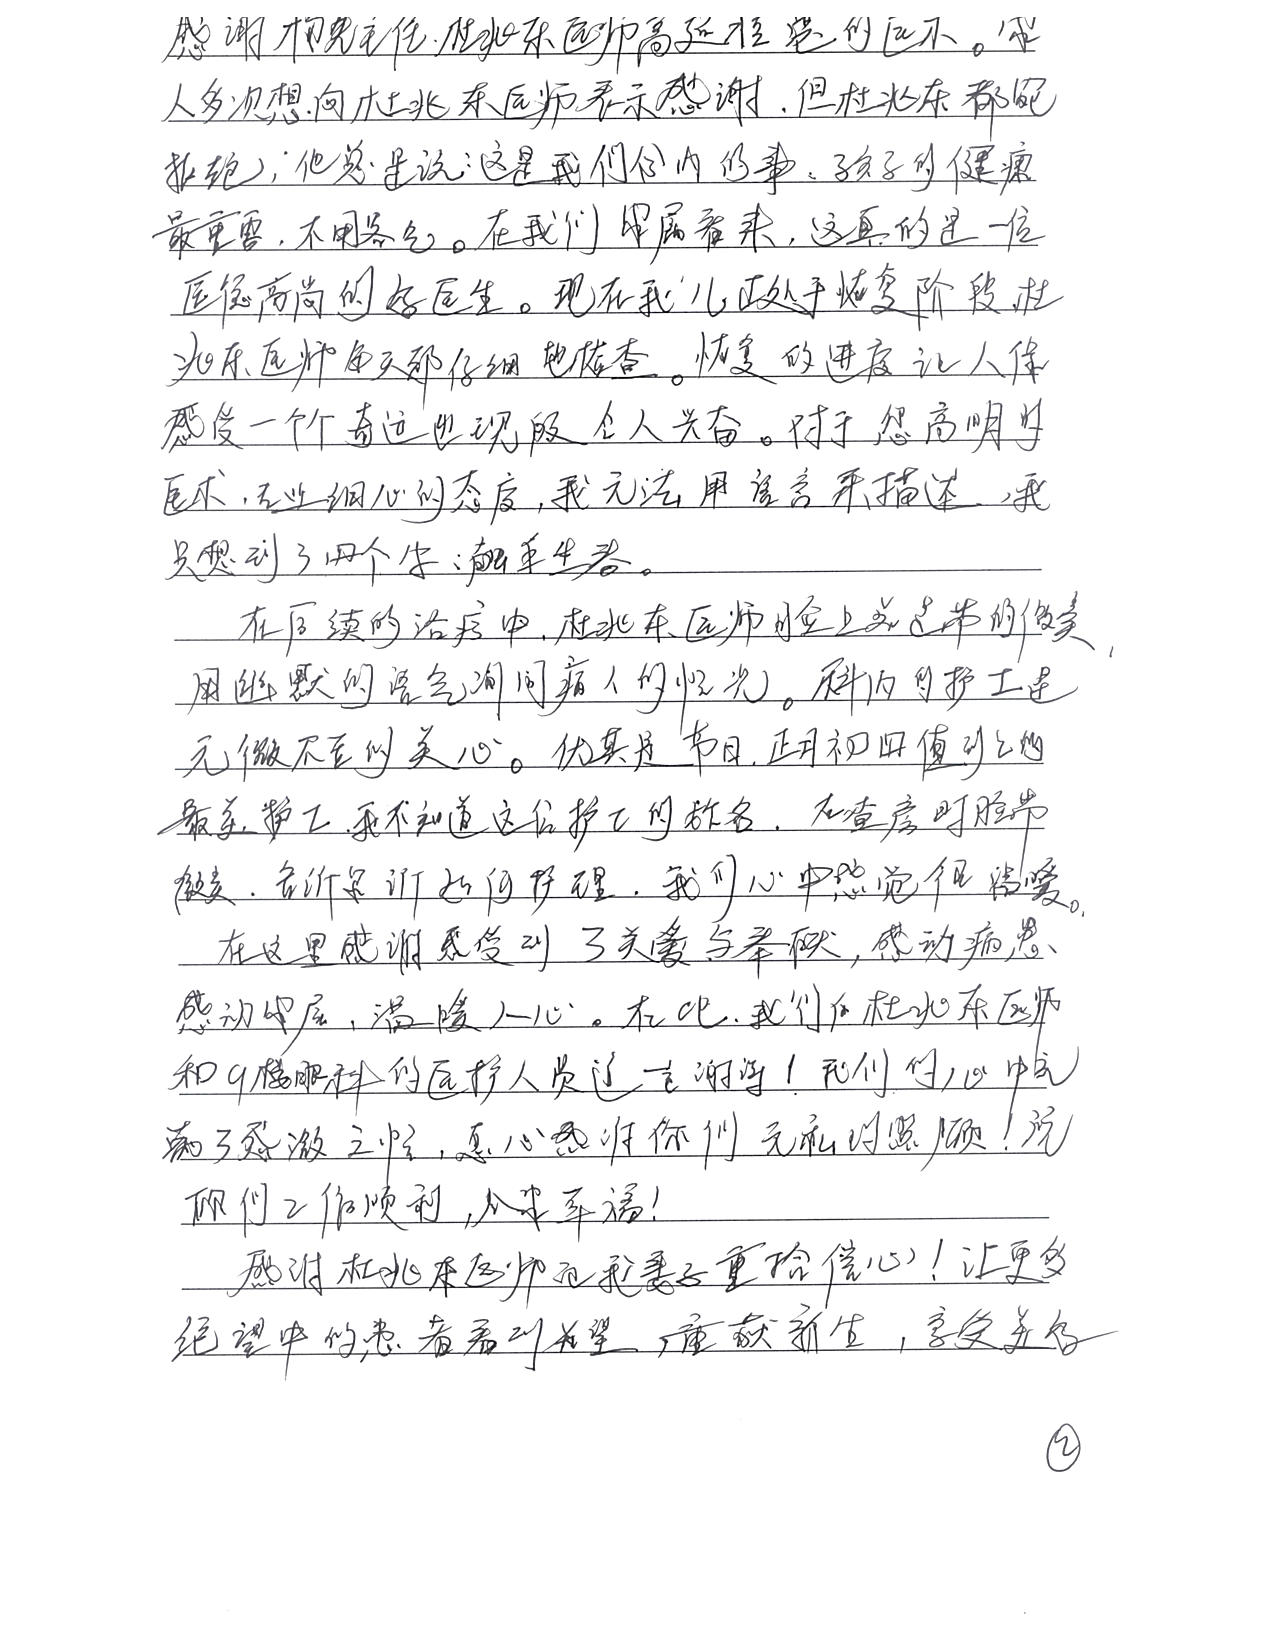 感谢相君主任.杜兆东医师高超精湛的医术。家
人多次想向杜兆东医师表示感谢.但杜兆东都婉
拒绝;他总是说:这是我们份内的事、孩子的健康
最重要.不用客气。在我们家属看来.这真的是一位
医德高尚的好医生。现在我儿正处于恢复阶段.杜
兆东医师每天都仔细地检查。恢复的进度让人体
感受一个个奇迹出现般令人兴奋。对于您高明的
医术.专业细心的态度,我无法用语言来描述,我
只想到了四个字:触手生春。
在后续的治疗中.杜兆东医师脸上总是带的微笑,
用幽默的语气询问病人的情况。科内的护士是
无微不至的关心。优其是节日.正月初四值班的
最美护士.我不知道这位护士的姓名.在查房时脸带
微笑.告诉家属如何护理.我们心中感觉很温暖。
在这里感谢感受到了关爱与奉献,感动病患、
感动家属,温暖人心。在此.我们向杜兆东医师
和9楼眼科的医护人员道一声谢谢!我们的心中充
满了感激之情,衷心感谢你们无私的照顾!祝
你们工作顺利,合家幸福!
感谢杜兆东医师把我妻子重拾信心!让更多
绝望中的患者看到希望,重获新生,享受美好
②